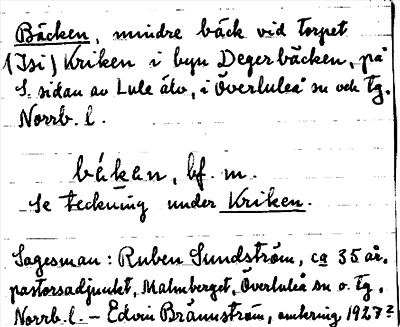 Bäcken, mindre bäck vid torpet
(Isi) Kriken i byn Degerbäcken, på
S. sidan av Lule älv, i Överluleå sn och tg.
Norrb. l.
békan, bf. m.
Se teckning under Kriken.
Sagesman: Ruben Sundström, ca 35 år,
pastorsadjunkt, Malmberget, Överluleå sn o. tg.,
Norrb. l. – Edvin Brännström, omkring 1927?